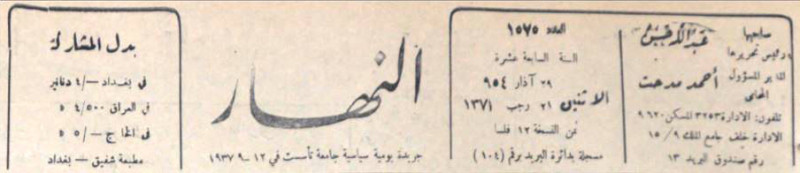 صاحبها
ورئيس تحريرها
المدير المسؤول
المحامي
أحمد مدحت
تلفون: الادارة ٣٢٥٣ المسكن ٩٦٢٠
الادارة خلف جامع الملك ٩ / ١٥
رقم صندوق البريد ١٣
العدد ١٥٧٥
السنة السابعة عشرة
٢٩ آذار ٩٥٤
الاثنين ٢١ رجب ١٣٧١
ثمن النسخة ١٢ فلسا
مسجلة بدائرة البريد برقم (١٠٤)
النهار
جريدة يومية سياسية جامعة تأسست في ١٢ - ٩ - ١٩٣٧
بدل المشاركة
في بغداد —/٤ دنانير
في العراق ٤/٥٠٠
في الخارج —/٥
مطبعة شفيق — بغداد